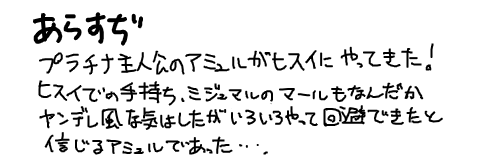 あらすぢ
プラチナ主人公のアミュルがヒスイに やってきた!
ヒスイでの手持ち、ミジュマルのマールもなんだか
ヤンデレ風な気はしたがいろいろやって回避できたと
信じるアミュルであった….